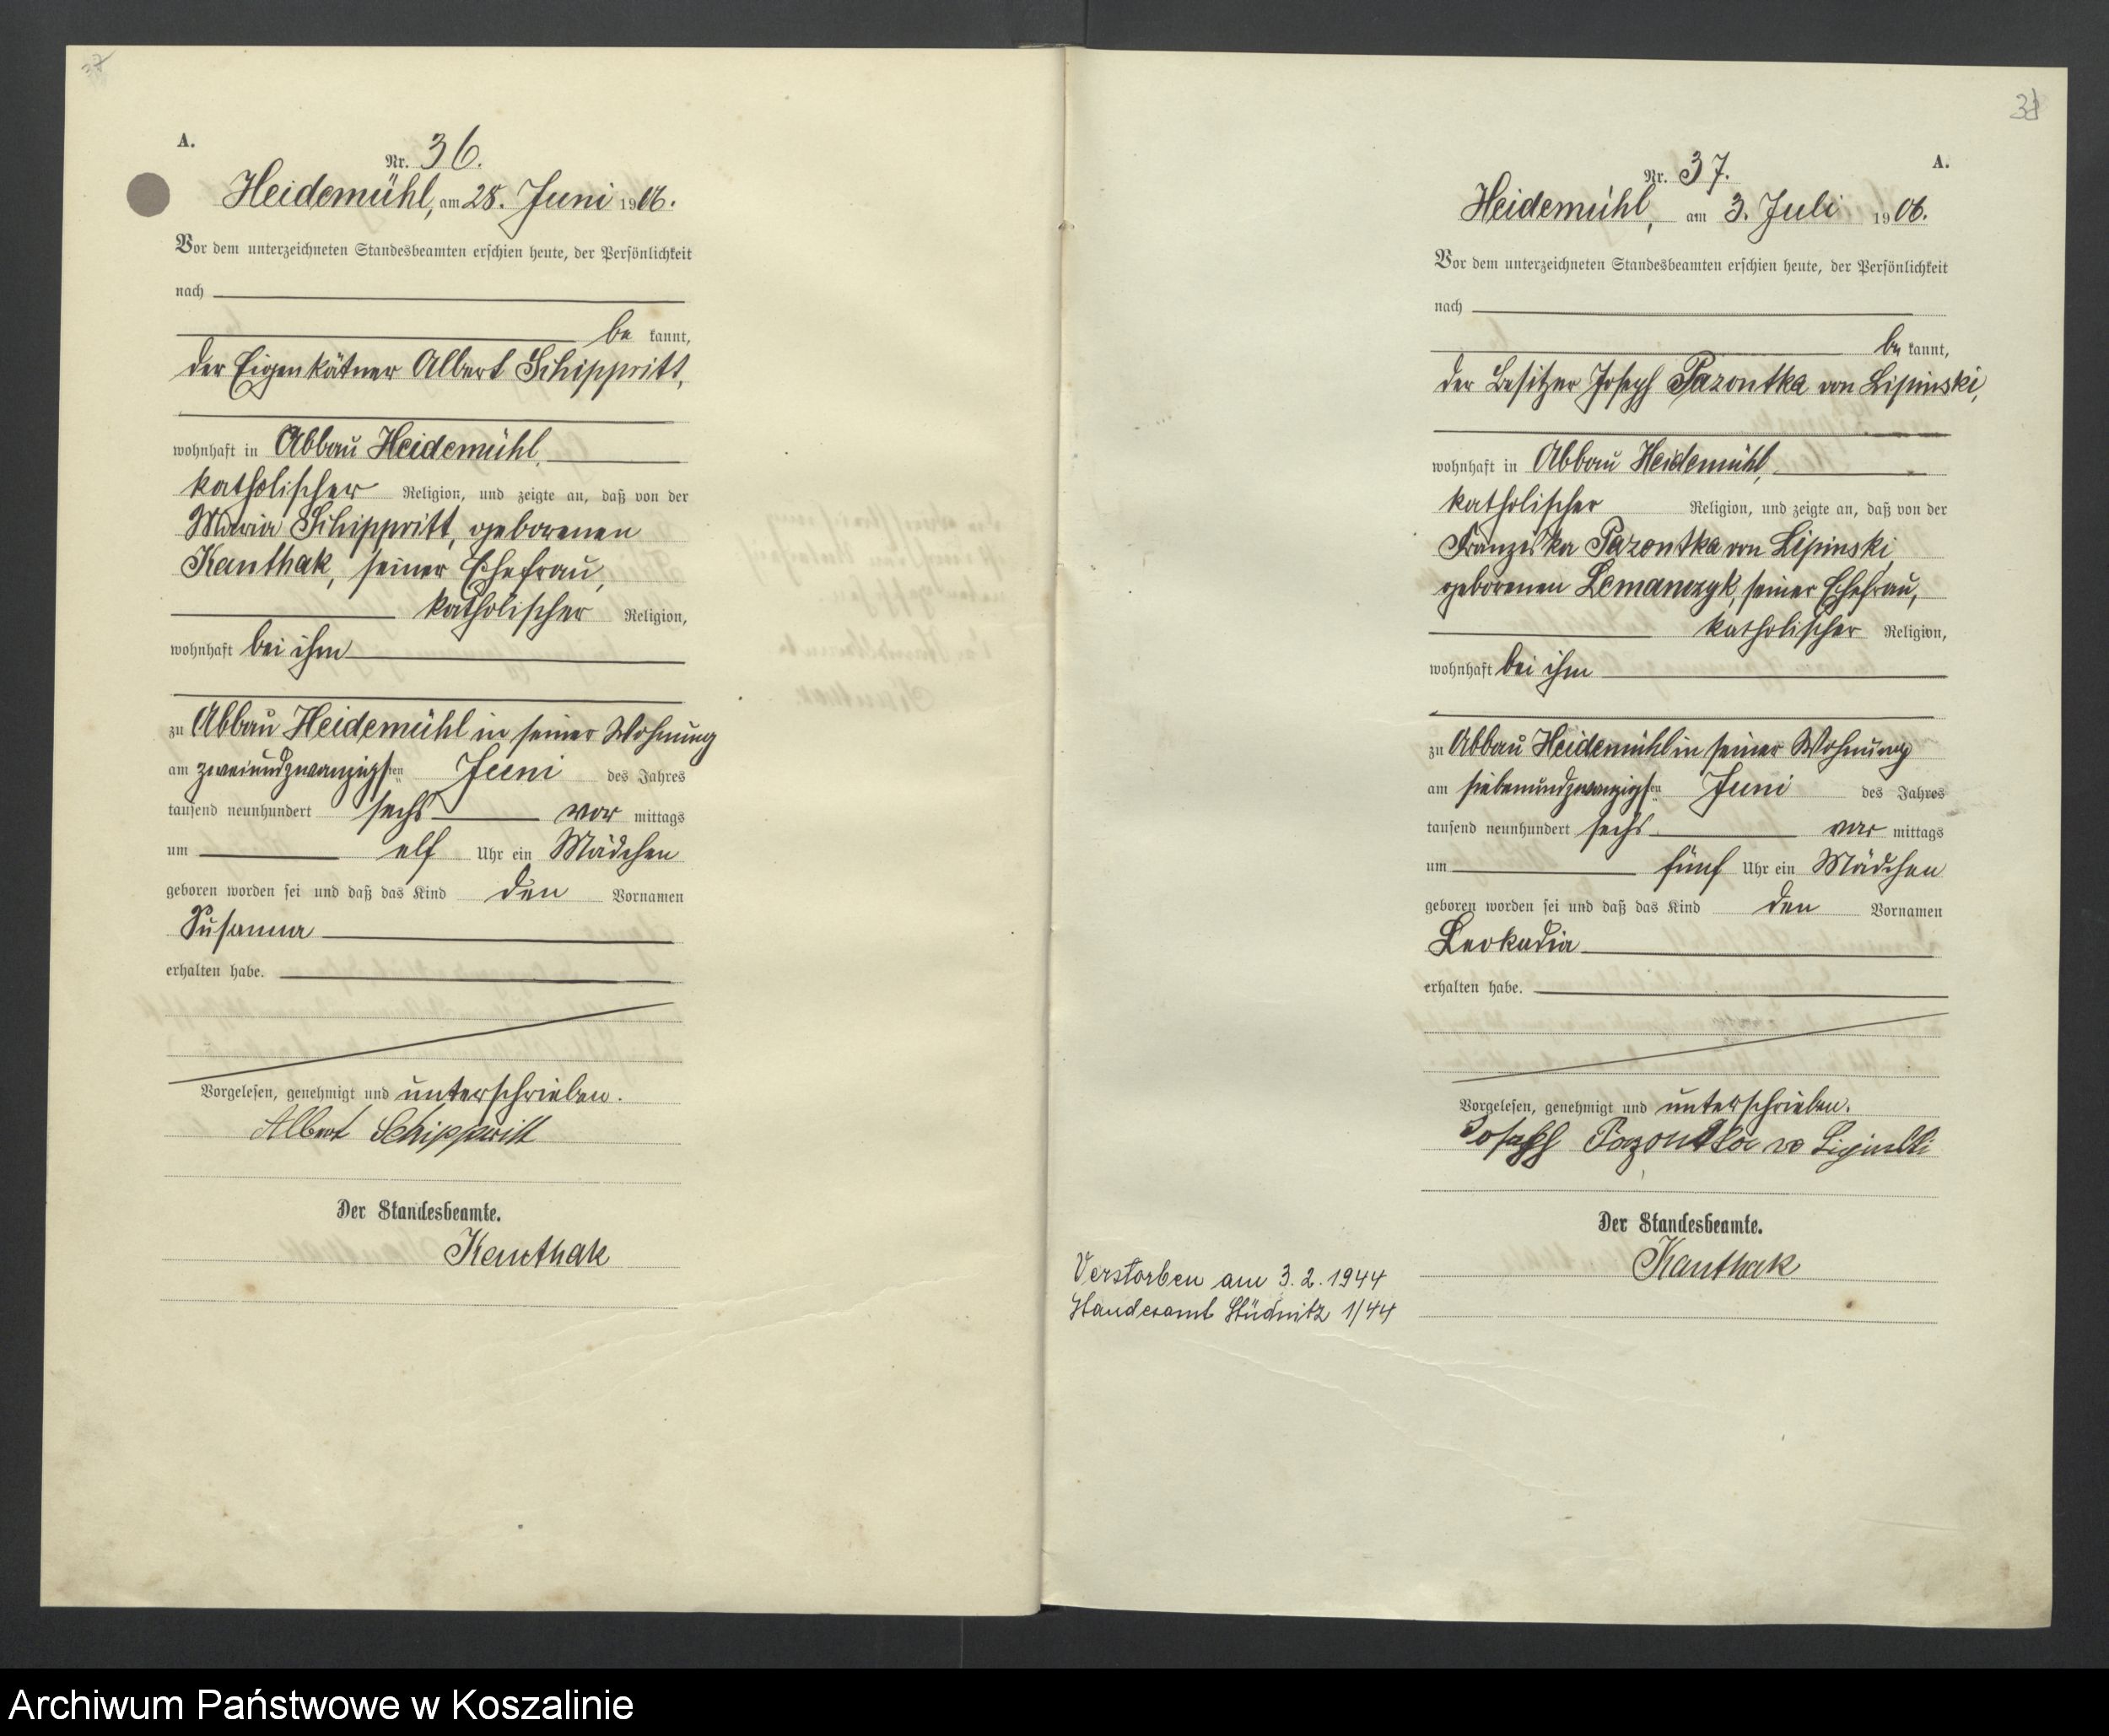 A.
Nr. 36.
Heidemühl, am 28. Juni 1906.
Vor dem unterzeichneten Standesbeamten erschien heute, der Persönlichkeit
nach
be kannt,
der Eigenkätner Albert Schippritt,
wohnhaft in Abbau Heidemühl,
katholischer Religion, und zeigte an, daß von der
Maria Schippritt, geborenen
Kanthak, seiner Ehefrau,
katholischer Religion,
wohnhaft bei ihm
zu Abbau Heidemühl in seiner Wohnung
am zweiundzwanzigsten Juni des Jahres
tausend neunhundert sechs vor mittags
um elf Uhr ein Mädchen
geboren worden sei und daß das Kind den Vornamen
Susanna
erhalten habe.
Vorgelesen, genehmigt und unterschrieben.
Albert Schippritt
Der Standesbeamte.
Kanthak
A.
Nr. 37.
Heidemühl, am 3. Juli 1906.
Vor dem unterzeichneten Standesbeamten erschien heute, der Persönlichkeit
nach
be kannt,
der Besitzer Joseph Pazontka von Lipinski,
wohnhaft in Abbau Heidemühl,
katholischer Religion, und zeigte an, daß von der
Franziska Pazontka von Lipinski
geborenen Lemanczyk, seiner Ehefrau,
katholischer Religion,
wohnhaft bei ihm
zu Abbau Heidemühl in seiner Wohnung
am siebenundzwanzigsten Juni des Jahres
tausend neunhundert sechs vor mittags
um fünf Uhr ein Mädchen
geboren worden sei und daß das Kind den Vornamen
Leokadia
erhalten habe.
Vorgelesen, genehmigt und unterschrieben.
Joseph Pazontka v Lipinski
Der Standesbeamte.
Kanthak
Verstorben am 3.2.1944
Standesamt Stüdnitz 1/44
Archiwum Państwowe w Koszalinie